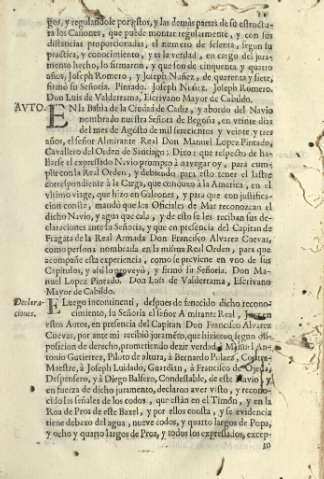 gos, y regulandole por estos, y las demás partes de su estructu-
ra los Cañones, que puede montar regularmente, y con sus
distancias proporcionadas, el numero de setenta, segun su
practica, y conocimiento, y es la verdad, en cargo del jura-
mento hecho, lo firmaron, y que son de cinquenta y quatro
años, Joseph Romero, y Joseph Nuñez, de quarenta y siete,
firmó su Señoria. Pintado. Joseph Nuñez. Joseph Romero.
Don Luis de Valderrama, Escrivano Mayor de Cabildo.
AUTO. EN la Bahia de la Ciudad de Cadiz, y abordo del Navio
nombrado nuestra Señora de Begoña, en veinte dias
del mes de Agosto de mil setecientos y veinte y tres
años, el señor Almirante Real Don Manuel Lopez Pintado,
Cavallero del Orden de Santiago: Dixo: que respecto de ha-
llarse el expressado Navio prompto à navegar oy, para cum-
plir con la Real Orden, y debiendo para esto tener el lastre
correspondiente à la Carga, que conduxo à la America, en el
ultimo viage, que hizo en Galeones, y para que con justifica-
cion conste, mandò que los Oficiales de Mar reconozcan el
dicho Navio, y agua que cala, y de esto se les reciban sus de-
claraciones ante su Señoria, y que en presencia del Capitan de
Fragata de la Real Armada Don Francisco Alvarez Cuevas,
como persona nombrada en la misma Real Orden, para que
acompañe esta experiencia, como se previene en uno de sus
Capitulos, y assi lo proveyò, y firmò su Señoria. Don Ma-
nuel Lopez Pintado. Don Luis de Valderrama, Escrivano
Mayor de Cabildo.
Declara-
ciones. E Luego incontinenti, despues de fenecido dicho recono-
cimiento, su Señoria el señor Almirante Real, en
estos Autos, en presencia del Capitan Don Francisco Alvarez
Cuevas, por ante mi recibiò juramento, que hizieron segun dis-
posicion de derecho, prometiendo dezir verdad, à Manuel An-
tonio Gutierrez, Piloto de altura, à Bernardo Pelaez, Contra-
Maestre, à Joseph Luidado, Guardian, à Francisco de Ojeda,
Despensero, y à Diego Balsero, Condestable, de este Navio, y
en fuerza de dicho juramento, declararon aver visto, y recono-
cido las señales de los codos, que estàn en el Timòn, y en la
Roa de Proa de este Baxel, y por ellos consta, y se evidencia
tiene debaxo del agua, nueve codos, y quatro largos de Popa,
y ocho y quarto largos de Proa, y todos los expressados, excep-
to